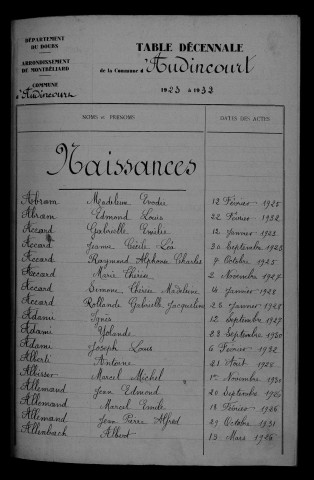 DÉPARTEMENT
DU DOUBS
ARRONDISSEMENT
DE MONTBÉLIARD
COMMUNE
d'Audincourt
TABLE DÉCENNALE
de la Commune d'Audincourt
1923 à 1932
NOMS et PRÉNOMS DATES DES ACTES
Naissances
Abram Madeleine 12 Février 1925
Abram Edmond Louis 22 Février 1932
Accard Gabrielle Emilie 12 Janvier 1923
Accard Jeanne Cécile 30 Septembre 1923
Accard Raymond Alphonse Charles 7 Octobre 1925
Accard Marie Thérèse 2 Novembre 1927
Accard Simone Thérèse Madeleine 16 Janvier 1928
Accard Rollande Gabrielle Jacqueline 28 Janvier 1928
Adami Agnès 12 Septembre 1927
Adami Yolande 28 Septembre 1930
Adami Joseph Louis 6 Février 1932
Alberti Antoine 21 Août 1926
Marcel Michel 1er Novembre 1930
Allemand Jean Edmond 20 Septembre 1925
Allemand Marcel Emile 18 Février 1926
Allemand Jean Pierre Alfred 29 Octobre 1931
Allenbach Albert 13 Mars 1926